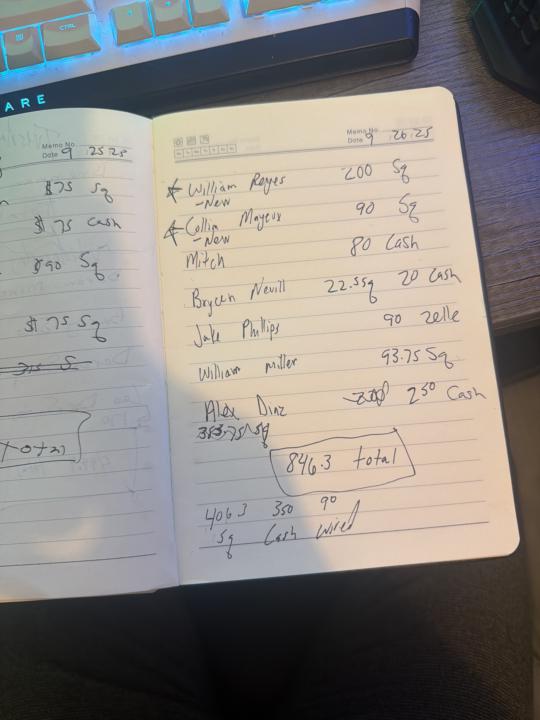 CTRL
ARE
Memo No.
Date 9 . 25 25
$75 Sq
$ 75 Cash
$90 Sq
$ 75 Sq
total
Memo No.
Date 9 . 26 . 25
William Reyes 200 Sq
- New
Collin Mayeux 90 Sq
- New
Mitch 80 Cash
Brycen Nevill 22.5 Sq 20 Cash
Jake Phillips 90 Zelle
William Miller 93.75 Sq
Alex Diaz 250 Cash
353.75 Sq
846.3 total
406.3 350 90
Sq Cash Wired